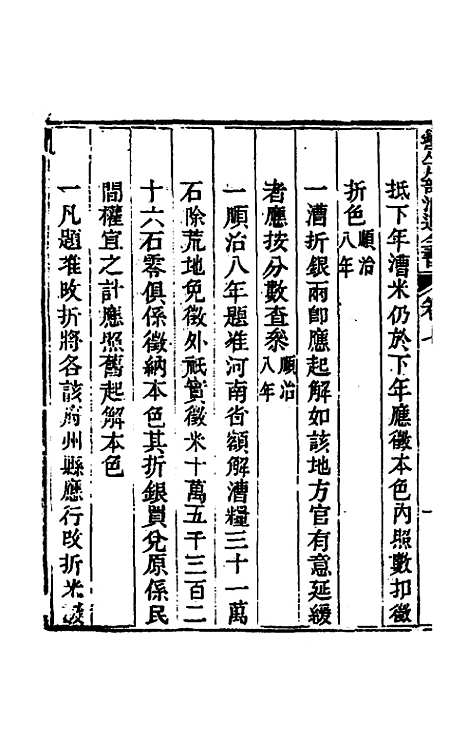 抵下年漕米仍於下年應徵本色內照數扣徵
折色順治八年
一漕折銀兩卽應起解如該地方官有意延緩
者應按分數查叅順治八年
一順治八年題准河南省額解漕糧三十一萬
石除荒地免徵外祇實徵米十萬五千三百二
十六石零俱係徵納本色其折銀買兌原係民
間權宜之計應照舊起解本色
一凡題准改折將各該府州縣應行改折米